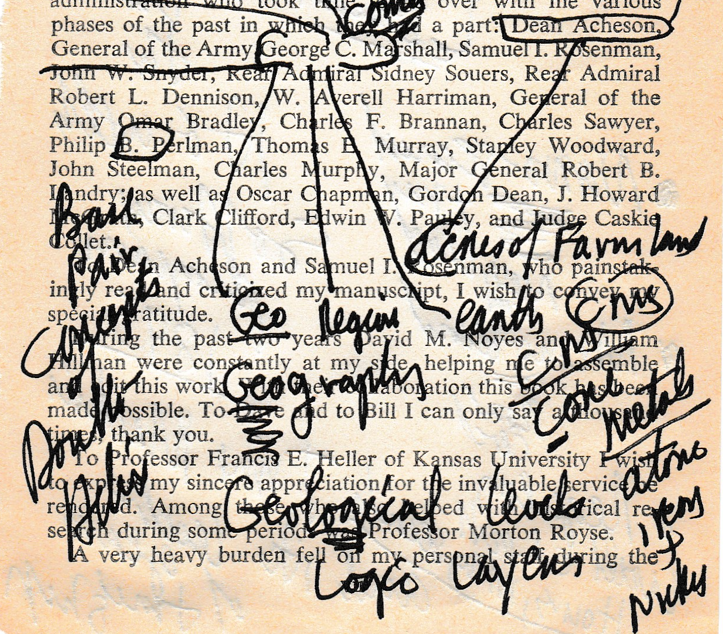 administration who took time over with me various
phases of the past in which they had a part: Dean Acheson,
General of the Army George C. Marshall, Samuel I. Rosenman,
John W. Snyder, Rear Admiral Sidney Souers, Rear Admiral
Robert L. Dennison, W. Averell Harriman, General of the
Army Omar Bradley, Charles F. Brannan, Charles Sawyer,
Philip B. Perlman, Thomas E. Murray, Stanley Woodward,
John Steelman, Charles Murphy, Major General Robert B.
Landry; as well as Oscar Chapman, Gordon Dean, J. Howard
Clark Clifford, Edwin W. Pauley, and Judge Caskie
Collet.
To Dean Acheson and Samuel I. Rosenman, who painstak-
ingly read and criticized my manuscript, I wish to convey my
special gratitude.
During the past two years David M. Noyes and William
Hillman were constantly at my side, helping me to assemble
and edit this work. collaboration this book has been
made possible. To Dave and to Bill I can only say a thousand
times, thank you.
To Professor Francis E. Heller of Kansas University I wish
to express my sincere appreciation for the invaluable service he
rendered. Among those who also helped with historical re-
search during some period was Professor Morton Royse.
A very heavy burden fell on my personal staff during the
Base
Pair
Concepts
of
Double
Helix
Acres of Farm land
Geo Region earth
Geography
Geological levels
Logic Layers
metals